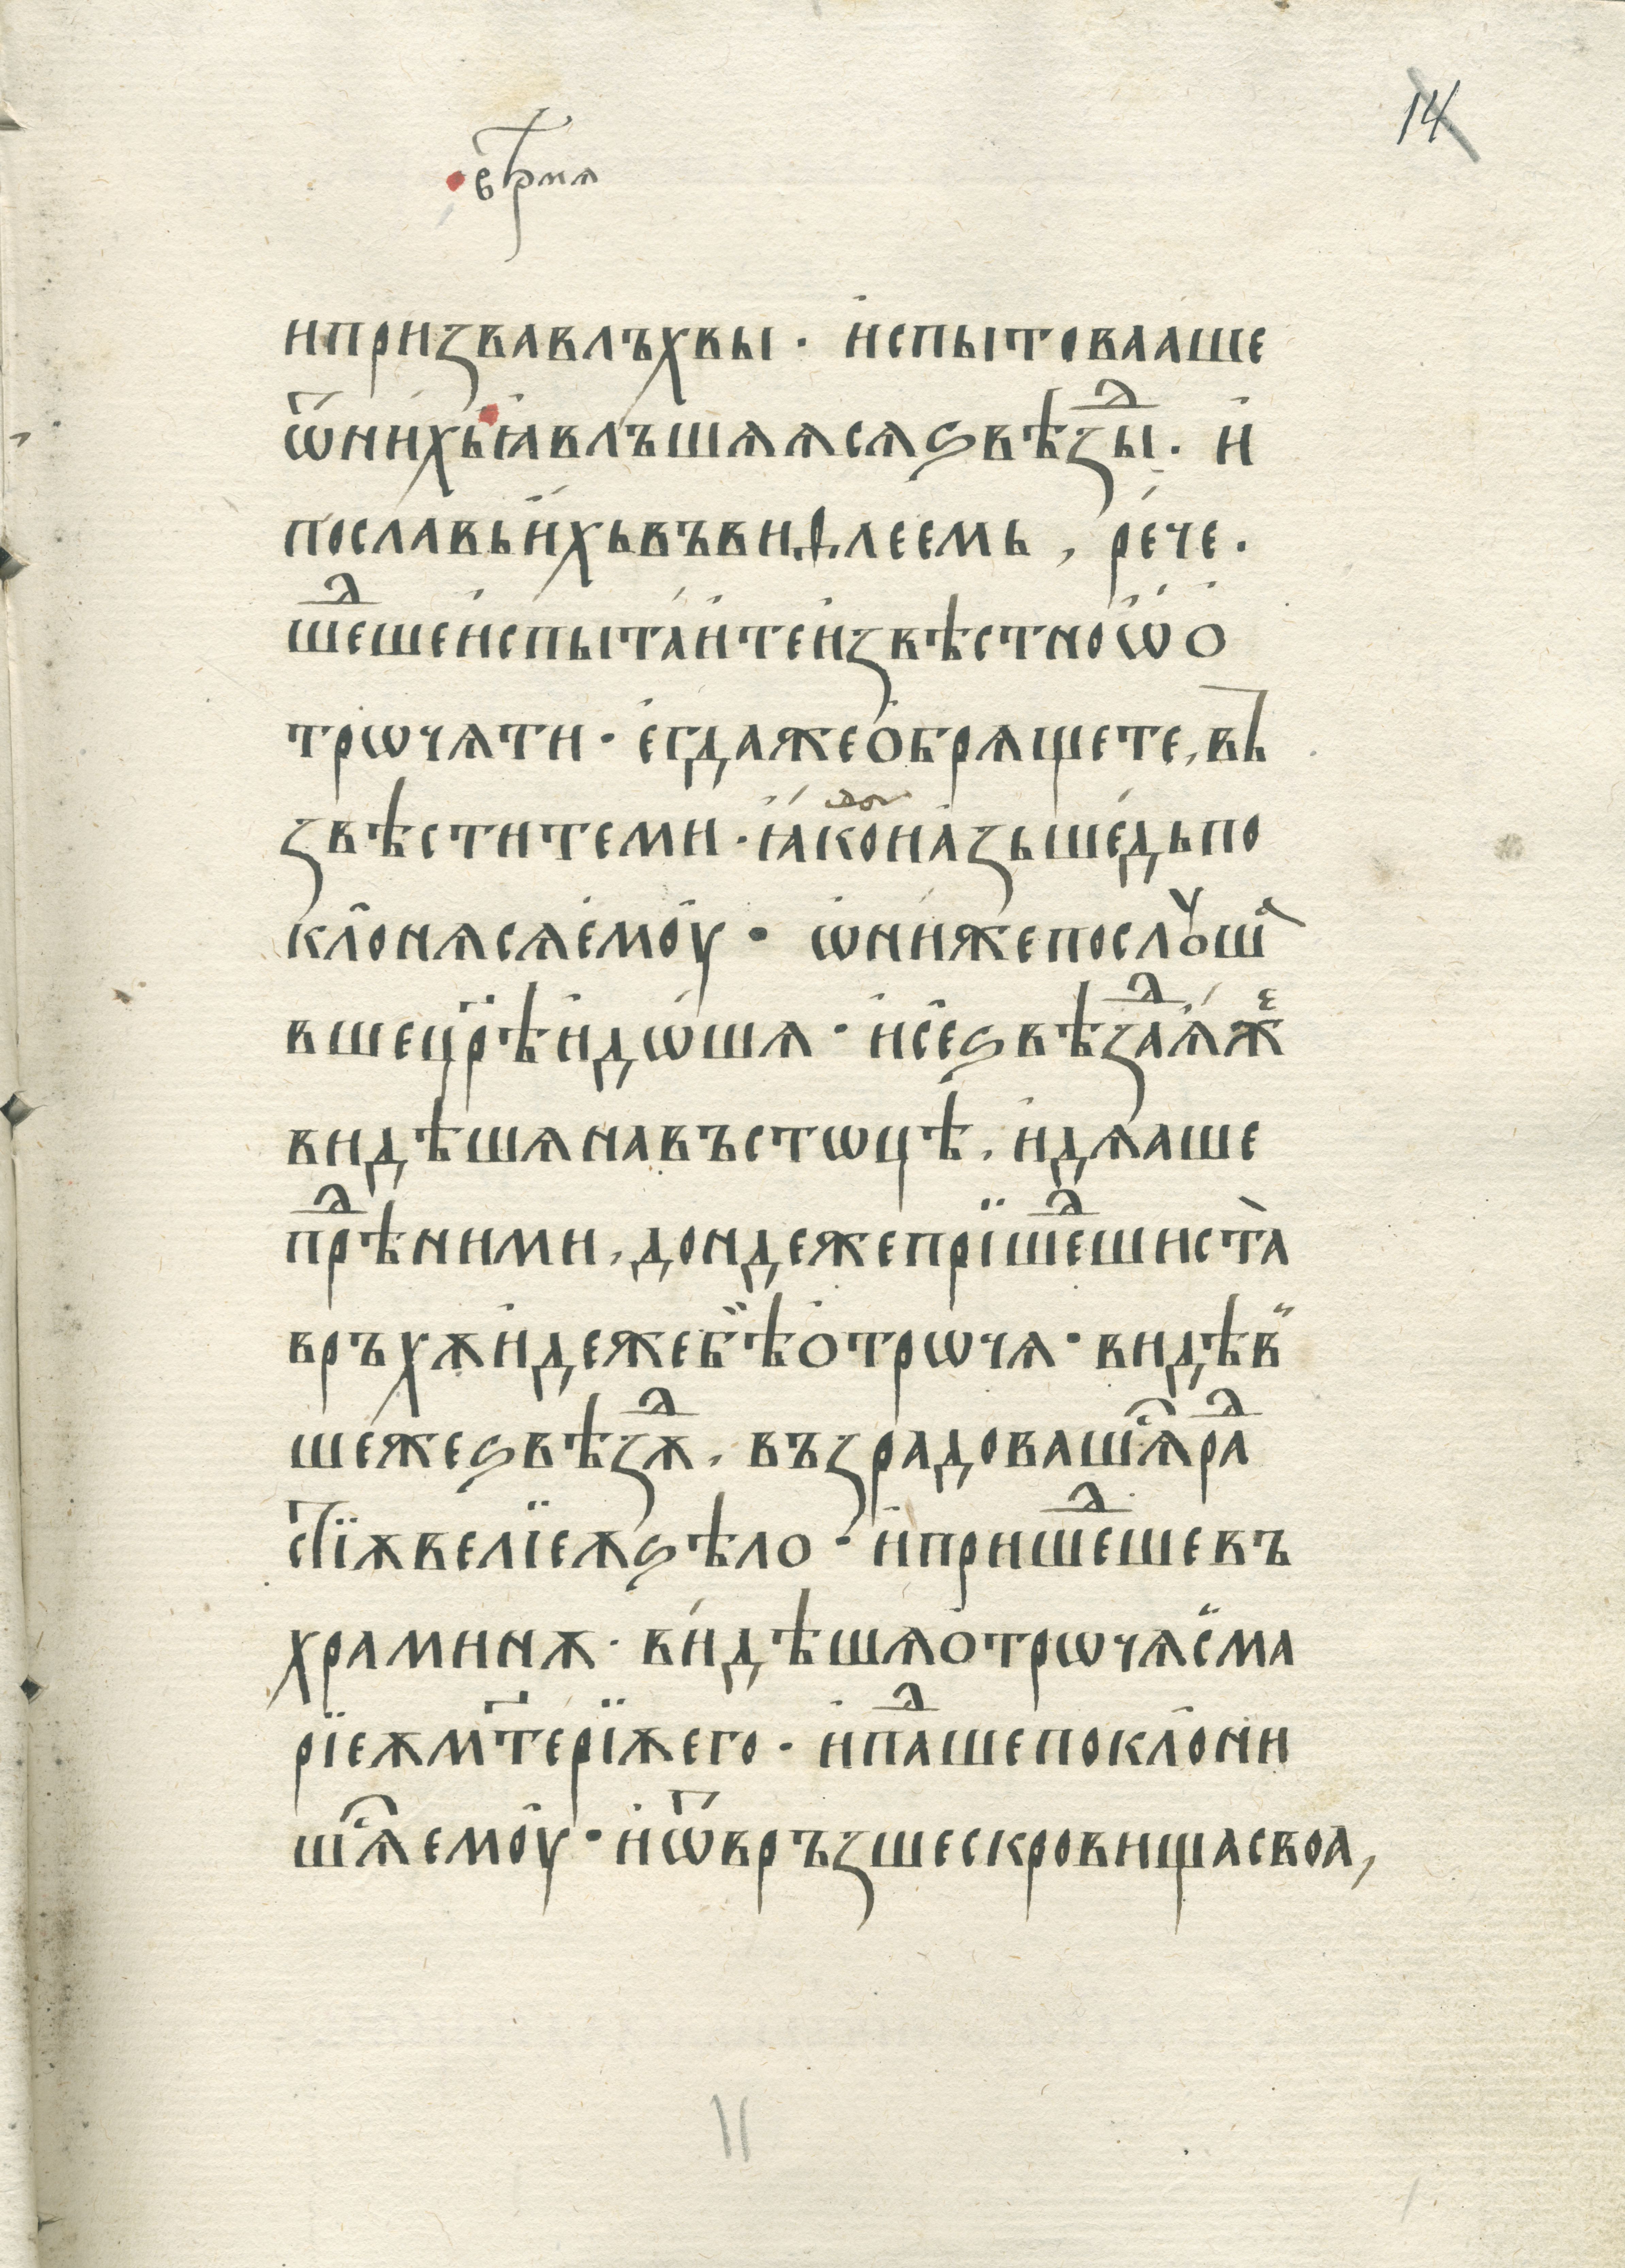 14
врѣмѧ
и призва влъхвы · и҆спытоваа́ше
ѿ ни́хь ꙗ҆влъшѧѧсѧ ѕвѣзⷣы · и҆
пославь и҆́хь въ виѳлеемь , ре́че ·
шеⷣше и҆спыта́и҆те и҆звѣстно ѡ҆ о҆
трѡчѧти · е҆гдаже о҆брѧщете , въ
звѣстите ми · ꙗ҆́ко нⷣа и҆ а҆зь ше́дь по
кло̑нѧсѧ е҆мо̑у · ѡ҆ни́же послꙋшаⷡ
вше цр҃ѣ и҆дѡ́шѧ · и҆ се̑ ѕвѣзⷣа ѧ҆́жеⷤ
видѣшѧ на въстѡцѣ , и҆дѧаше
прⷣѣ ними , дондеже прїшеⷣши ста̀
връхꙋ и҆деже бѣ̏ о҆трѡчѧ · видѣв̏
шеже ѕвѣзⷣѫ , възрадовашѧⷭ раⷣ
стїѫ велїеѫ ѕѣло · и҆ пришеⷣше въ
храминѫ · ви́дѣшѧ о҆трѡчѧ с̏ ма
рїеѫ мт҃ерїѫ его · и҆ паⷣше покло̑ни
шѧⷭ емо̑у · и҆ ѿвръзше скровища своа ,
11